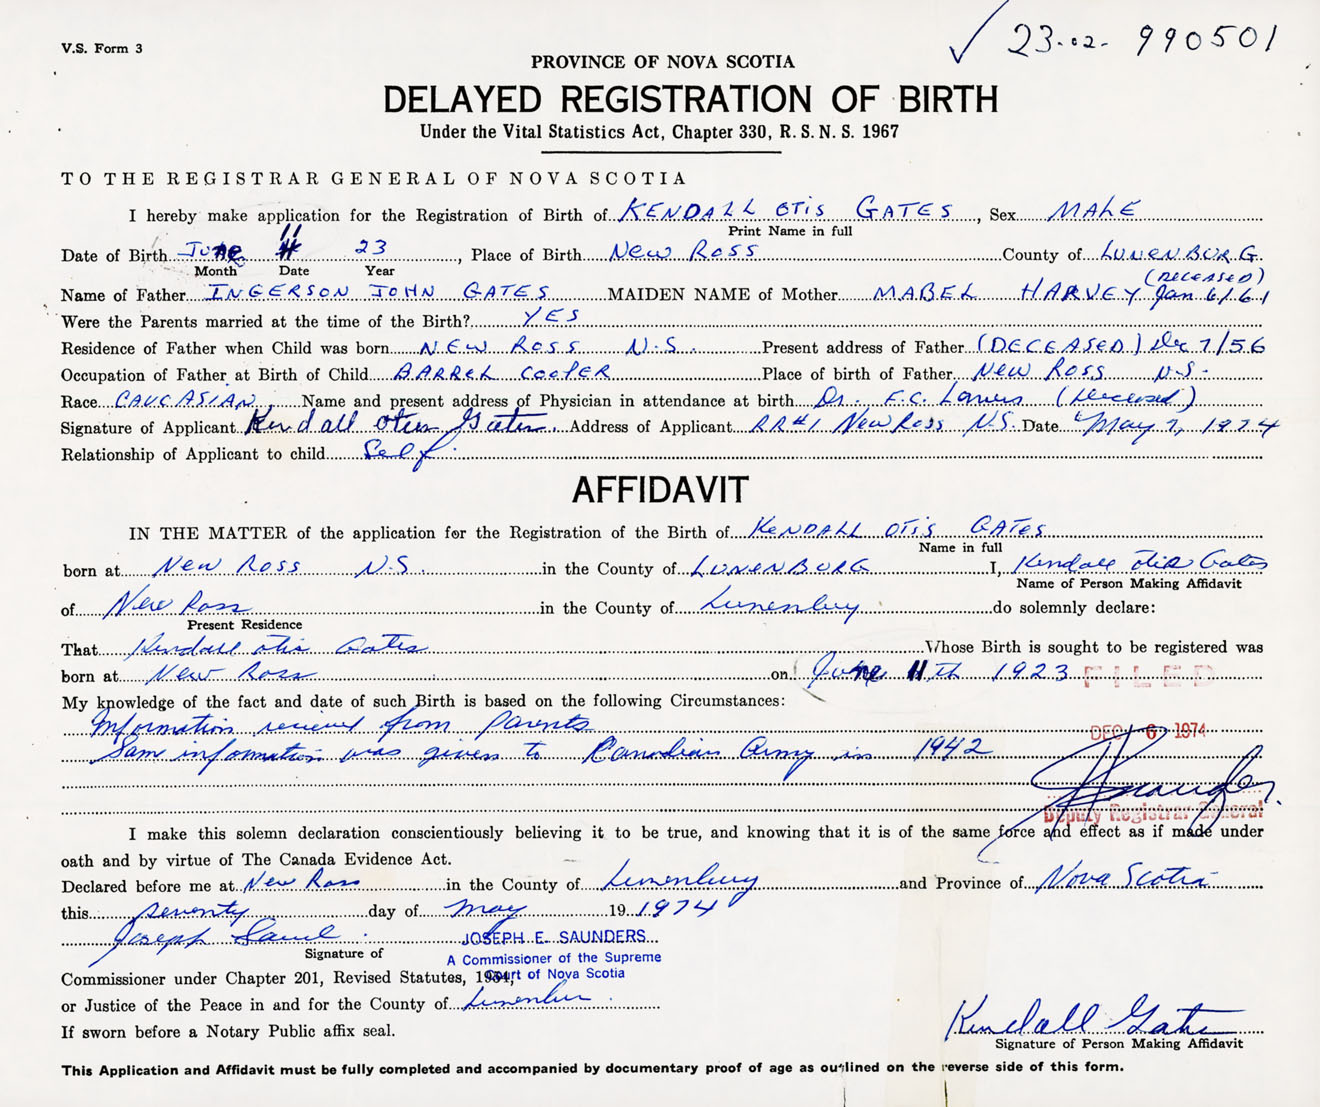 V.S. Form 3
✓ 23-02-990501
PROVINCE OF NOVA SCOTIA
DELAYED REGISTRATION OF BIRTH
Under the Vital Statistics Act, Chapter 330, R. S. N. S. 1967
TO THE REGISTRAR GENERAL OF NOVA SCOTIA
I hereby make application for the Registration of Birth of KENDALL OTIS GATES, Sex MALE
Print Name in full
Date of Birth JUNE 11 23, Place of Birth NEW ROSS County of LUNENBURG.
Month Date Year
(DECEASED)
Name of Father INGERSON JOHN GATES MAIDEN NAME of Mother MABEL HARVEY Jan 6/61
Were the Parents married at the time of the Birth? YES
Residence of Father when Child was born NEW ROSS N.S. Present address of Father (DECEASED) Dec 7/56
Occupation of Father at Birth of Child BARREL COOPER Place of birth of Father NEW ROSS N.S.
Race CAUCASIAN Name and present address of Physician in attendance at birth Dr. F.C. (Deceased)
Signature of Applicant Kendall Otis Gates. Address of Applicant RR#1 New Ross N.S. Date May 7, 1974
Relationship of Applicant to child Self.
AFFIDAVIT
IN THE MATTER of the application for the Registration of the Birth of KENDALL OTIS GATES
Name in full
born at NEW ROSS N.S. in the County of LUNENBURG I, Kendall Otis Gates
Name of Person Making Affidavit
of New Ross in the County of Lunenburg do solemnly declare:
Present Residence
That Kendall Otis Gates Whose Birth is sought to be registered was
born at New Ross on June 11th 1923 FILED
My knowledge of the fact and date of such Birth is based on the following Circumstances:
Information recieved from Parents
Sam information was given to Canadian Army in 1942
DEC 6 1974
Deputy Registrar General
I make this solemn declaration conscientiously believing it to be true, and knowing that it is of the same force and effect as if made under
oath and by virtue of The Canada Evidence Act.
Declared before me at New Ross in the County of Lunenburg and Province of Nova Scotia
this seventy day of May 19 1974
Joseph JOSEPH E. SAUNDERS
Signature of A Commissioner of the Supreme
Court of Nova Scotia
Commissioner under Chapter 201, Revised Statutes, 1954,
or Justice of the Peace in and for the County of
If sworn before a Notary Public affix seal.
Kendall Gates
Signature of Person Making Affidavit
This Application and Affidavit must be fully completed and accompanied by documentary proof of age as outlined on the reverse side of this form.